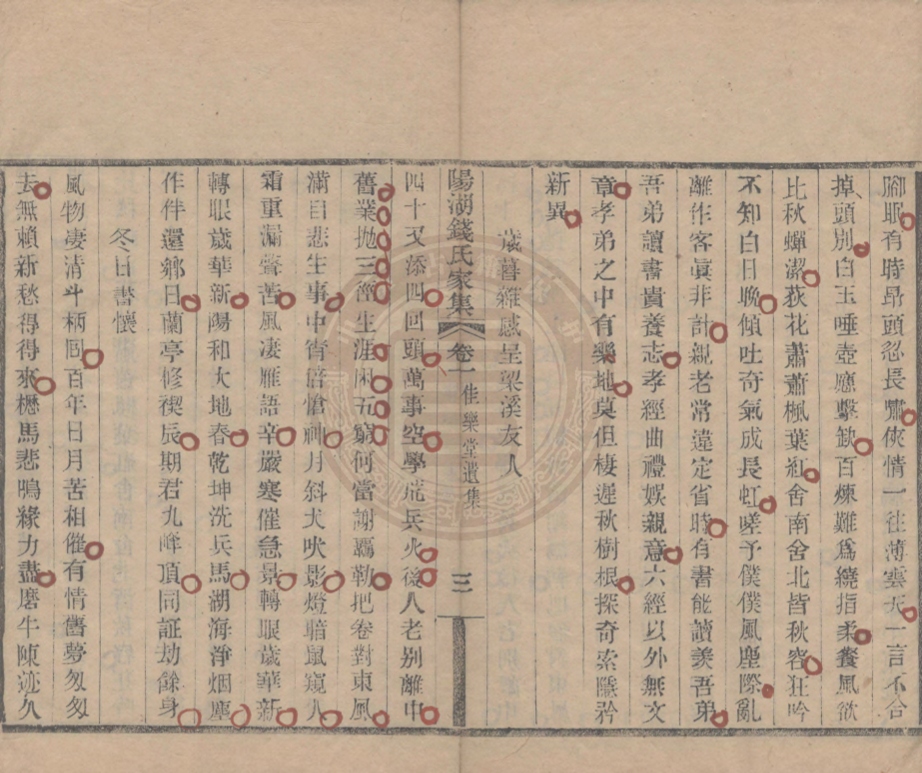 腳眠有時昻頭忽長嘯俠情一往薄雲天一言不合
掉頭別白玉唾壺應擊缺百煉難爲繞指柔餐風欲
比秋蟬潔荻花蕭蕭楓葉紅舍南舍北皆秋容狂吟
不知白日晚傾吐奇氣成長虹嗟予僕僕風塵際亂
離作客眞非計親老常違定省時有書能讀羨吾弟
吾弟讀書貴養志孝經曲禮娛親意六經以外無文
章孝弟之中有樂地莫但棲遲秋樹根探奇索隱矜
新異
歲暮雜感呈梁溪友人
陽湖錢氏家集 卷一 佳樂堂遺集 三
四十又添四回頭萬事空學荒兵火後人老别離中
舊業拋三徑生涯困五窮何當謝羈勒把卷對東風
滿目悲生事中宵倍愴神月斜犬吠影燈暗鼠窺人
霜重漏聲苦風凄雁語辛嚴寒催急景轉眼歲華新
轉眼歲華新陽和大地春乾坤洗兵馬湖海淨烟塵
作伴還鄉日蘭亭修禊辰期君九峰頂同証劫餘身
冬日書懷
風物凄清斗柄囘百年日月苦相催有情舊夢匆匆
去無賴新愁得得來櫪馬悲鳴緣力盡磨牛陳迹久